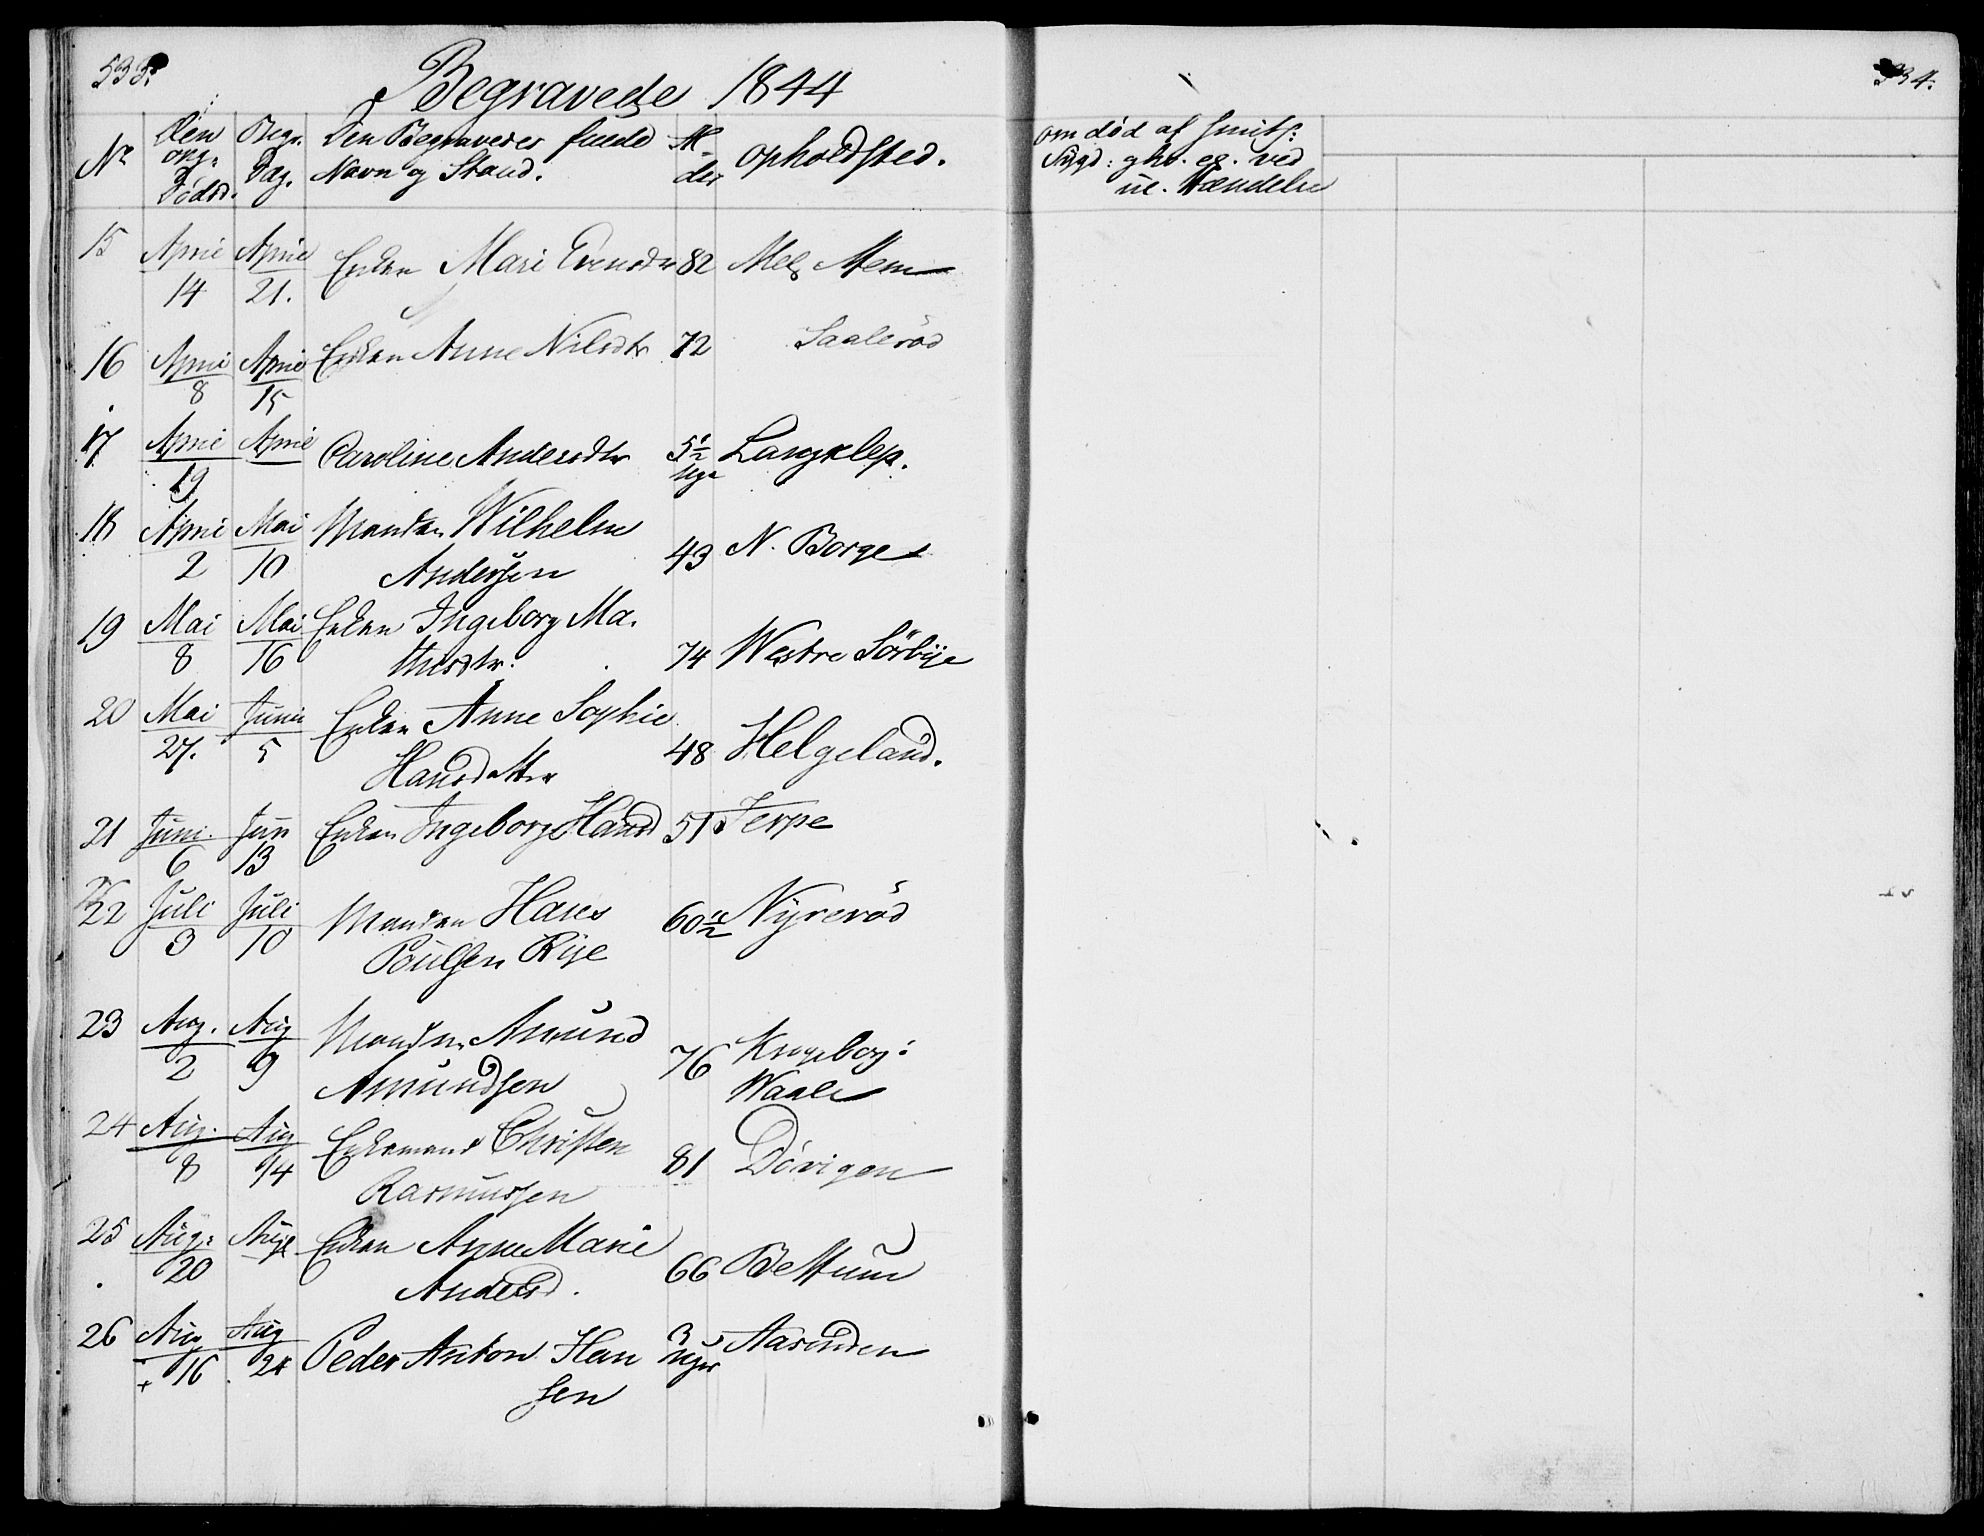 533.
Begravede 1844
No Den Begr. Den Begravedes fulde Al- opholdsted.
Dag. Navn og Stand. der
Dödsd.
15 April April Enken Mari Evensdr 82 Mem
14 21.
16 April April Enken Anne Nilsdtr 72 Saaleröd
8 15
17 April April Caroline Andersdtr 5½ Langklep.
19 uge
18 April Mai Manden Wilhelm
2 10 Andersen 43 N. Borge
19 Mai Mai Enken Ingeborg Ma.
8 16 thisdtr. 74 Westre Sörbye
20 Mai Junii Enken Anne Sophie
27. 5 Hansdatter 48 Helgeland.
21 Juni. Jun Enken Ingeborg Hansd 51 Jerpe
6 13
22 Juli Juli Manden Hans 60½ Nyreröd
3 10 Poulsen Rije
23 Aug. Aug Manden Amund
2 9 Amundsen 76 Krogeborg:
Waale
24 Aug. Aug Enkemand Christen
8 14 Rasmussen 81 Dövigen
25 Aug: Aug Enken Anne Marie
20 Andersd. 66 Bettum
26 Aug Aug Peder Anton Han 3 Aasenden
16 24 sen uger
534.
om död af smits:
Sygd: ved
Hændelse